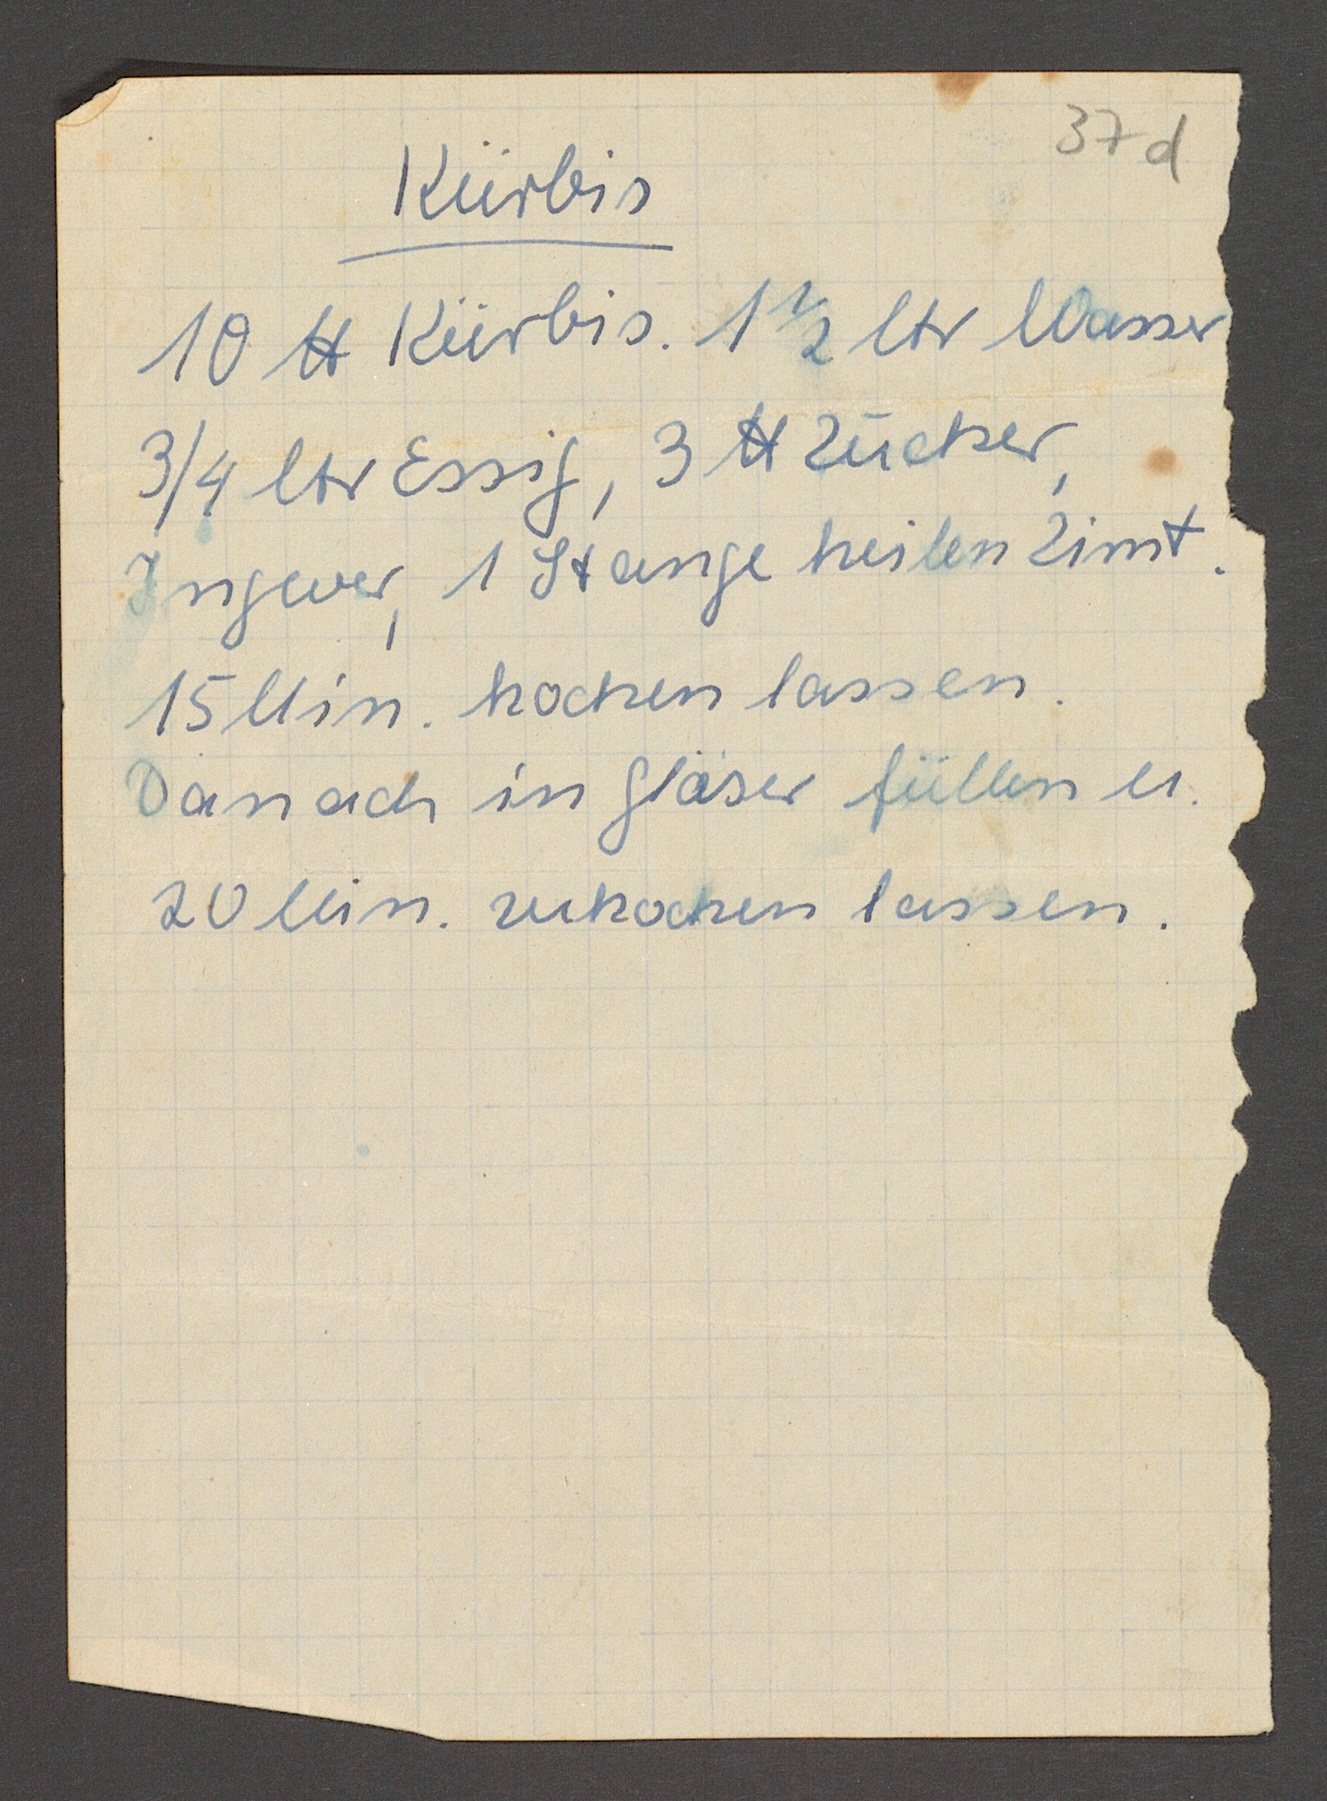 37d
Kürbis
10 ℔ Kürbis. 1 1/2 ltr Wasser
3/4 ltr Essig, 3 ℔ Zucker,
Ingwer, 1 Stange heilen Zimt.
15 Min. kochen lassen.
Danach in Gläser füllen u.
20 Min. zukochen lassen.